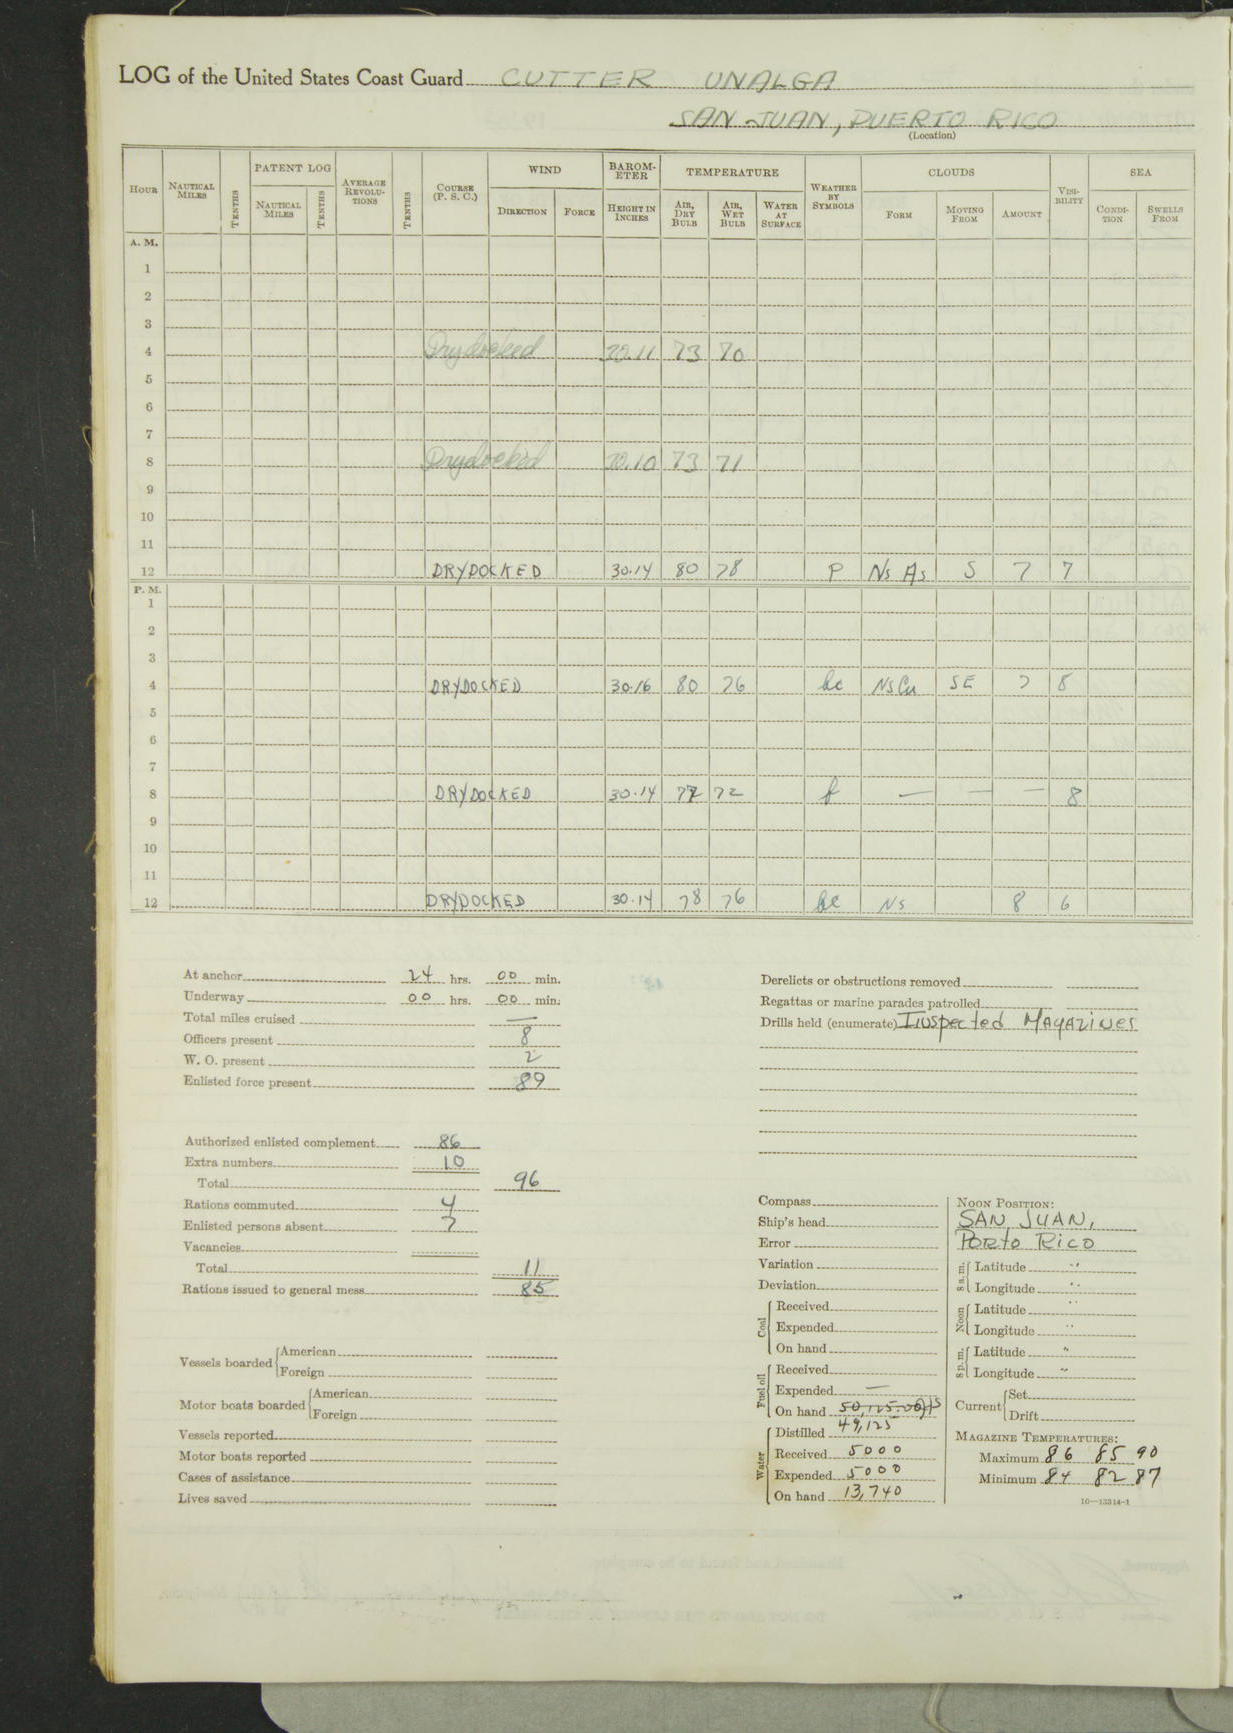 LOG of the United States Coast Guard CUTTER UNALGA
SAN JUAN, PUERTO RICO
(Location)
HOUR NAUTICAL MILES TENTHS PATENT LOG NAUTICAL MILES TENTHS AVERAGE REVOLU-TIONS TENTHS COURSE (P. S. C.) WIND DIRECTION FORCE BAROM-ETER HEIGHT IN INCHES TEMPERATURE AIR, DRY BULB AIR, WET BULB WATER AT SURFACE WEATHER BY SYMBOLS CLOUDS FORM MOVING FROM AMOUNT VISI-BILITY SEA CONDI-TION SWELLS FROM
A. M.
1
2
3
4 Drydocked 30.11 73 70
5
6
7
8 Drydocked 30.10 73 71
9
10
11
12 DRYDOCKED 30.14 80 78 P Ns As S 7 7
P. M.
1
2
3
4 DRYDOCKED 30.16 80 76 bc NsCu SE 7 8
5
6
7
8 DRYDOCKED 30.14 77 72 b — — — 8
9
10
11
12 DRYDOCKED 30.14 78 76 bc Ns 8 6
At anchor 24 hrs. 00 min.
Underway 00 hrs. 00 min.
Total miles cruised —
Officers present 8
W. O. present 2
Enlisted force present 89
Authorized enlisted complement 86
Extra numbers 10
Total 96
Rations commuted 4
Enlisted persons absent 7
Vacancies
Total 11
Rations issued to general mess 85
Vessels boarded American
Foreign
Motor boats boarded American
Foreign
Vessels reported
Motor boats reported
Cases of assistance
Lives saved
Derelicts or obstructions removed
Regattas or marine parades patrolled
Drills held (enumerate) Inspected Magazines
Compass
Ship's head
Error
Variation
Deviation
Coal Received
Expended
On hand
Fuel oil Received
Expended —
On hand 50,125.00
49,125
Water Distilled
Received 5000
Expended 5000
On hand 13,740
NOON POSITION:
SAN JUAN,
PORTO RICO
8 a. m. Latitude "
Longitude "
Noon Latitude "
Longitude "
8 p. m. Latitude "
Longitude "
Current Set
Drift
MAGAZINE TEMPERATURES:
Maximum 86 85 90
Minimum 84 82 87
10—13314-1